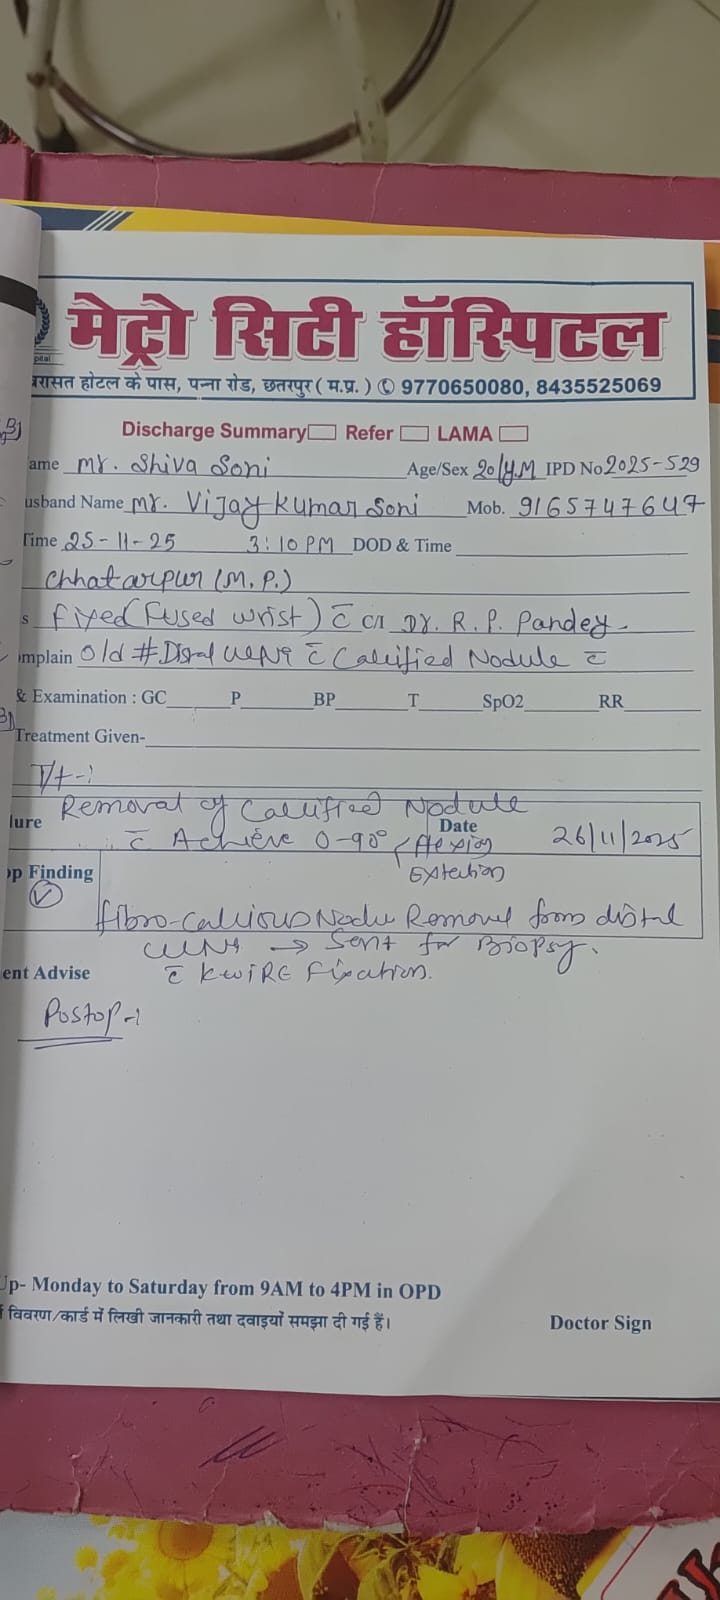 मेट्रो सिटी हॉस्पिटल
रासत होटल के पास, पन्ना रोड, छतरपुर ( म.प्र. ) 9770650080, 8435525069
Discharge Summary Refer LAMA
ame Mr. Shiva Soni Age/Sex 20/Y.M IPD No 2025-529
usband Name Mr. Vijay Kumar Soni Mob. 9165747647
Time 25-11-25 3:10 PM DOD & Time
Chhatarpur (M.P.)
s Fixed (Fused wrist) c̄ Dr. R. P. Pandey
mplain Old # Distal c̄ Calcified Nodule c̄
& Examination : GC P BP T SpO2 RR
Treatment Given-
T/t -:
Removal of Calcified Nodule
dure c̄ Achieve 0-90° Flexion Date 26/11/2025
Extection
op Finding
fibro-Calcious Removel from distal
→ Sent for Biopsy.
ent Advise c̄ KWIRE Fixation.
Postop -:
Up- Monday to Saturday from 9AM to 4PM in OPD
विवरण/कार्ड में लिखी जानकारी तथा दवाइयाँ समझा दी गई हैं।
Doctor Sign